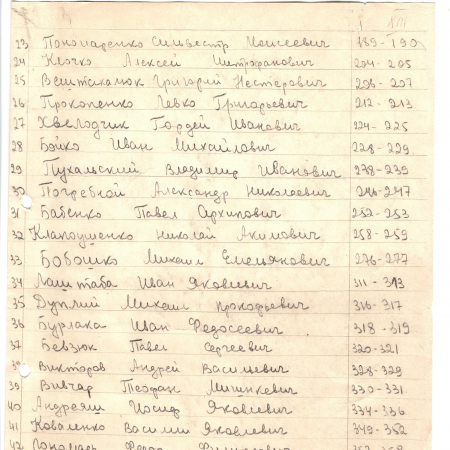 I XIII
23 Пономаренко Сильвестр Моисеевич 189-190
24 Клочко Алексей Митрофанович 204-205
25 Вештакалюк Григорий Нестерович 206-207
26 Прокопенко Левко Григорьевич 212-213
27 Хвелодчик Гордей Иванович 224-225
28 Бойко Иван Михайлович 228-229
29 Пухальский Владимир Иванович 238-239
30 Погребной Александр Николаевич 246-247
31 Бабенко Павел Архипович 252-253
32 Клапоушенко Николай Акимович 258-259
33 Бобошко Михаил Емельянович 276-277
34 Лаштаба Иван Яковлевич 311-313
35 Михаил Прокофьевич 316-317
36 Бурлака Иван Федосеевич 318-319
37 Бевзюк Павел Сергеевич 320-321
38 Викторов Андрей Васильевич 328-329
39 Теофан 330-331
40 Андреяш Иосиф Яковлевич 334-336
41 Коваленко Василий Яковлевич 349-352
42